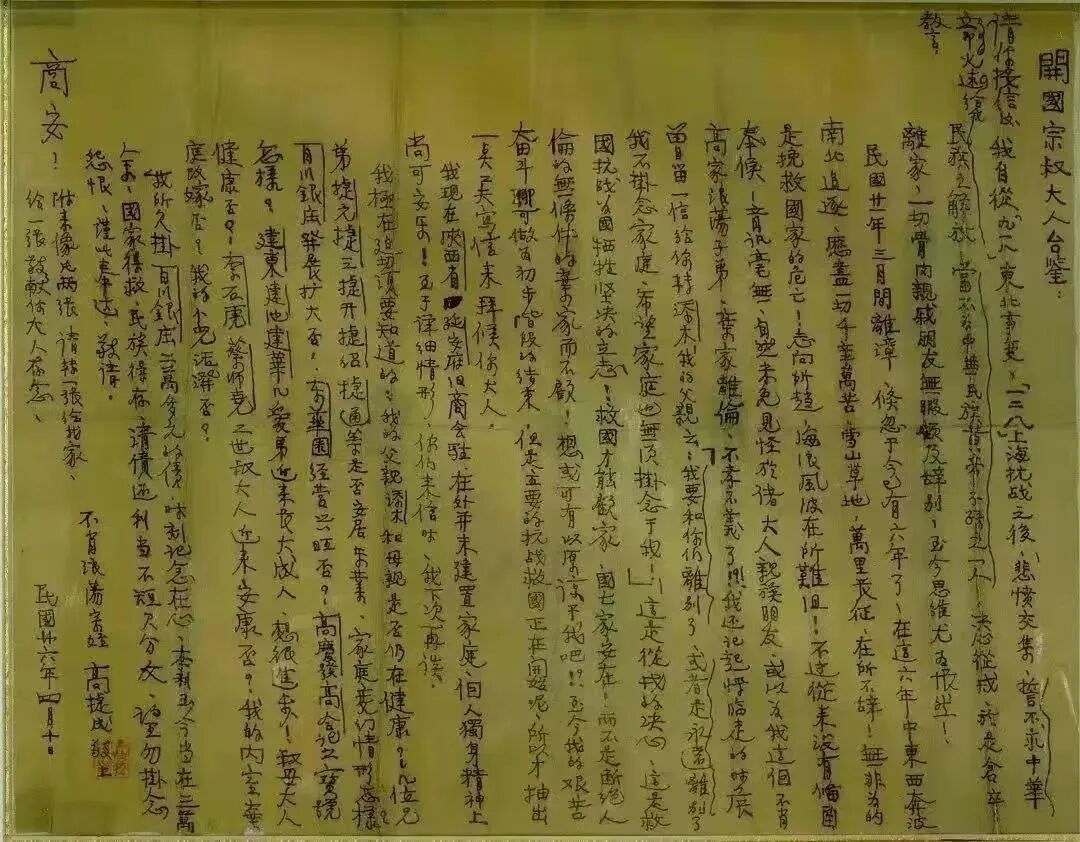 開國宗叔大人台鑒：
請你接信後
火速給我
教言。
我自從「九一八」東北事變，「一二八」上海抗战之後，悲憤交集，誓不求中華
民族之解放，當不為中華民族黃帝子孫之一个，决心從戎，於是倉卒
離家，一切骨肉親戚朋友無暇顧及辞别，至今思维尤为恨然！
民國廿一年三月間離漳，倏忽于今已有六年了，在這六年中東西奔波
南北追逐，歷盡一切千辛萬苦，雪山草地，萬里長征，在所不辞！無非为的
是挽救國家的危亡！志向所趨，海浪風波在所難阻！不过從来没有備函
奉候，音讯毫無，自然未免見怪於诸大人親族朋友，或以为我這個不肖
高家浪荡子弟，棄家離倫，不孝不義了！?!我还記起臨走的时辰
曾留一信给你转添木我的父親云：「我要和你们離别了，或者是永远離别了
我不掛念家庭，希望家庭也無须掛念于我！」這是從戎的决心，這是救
國抗战为國牺牲坚决的立志！救國才能顧家，國亡家安在！而不是断绝人
倫的無情的棄家而不顧！想或可有以原谅于我吧!?至今我的艰苦
奋斗聊可做初步階段的结束，但是主要的抗战救國正在開始呢，所以才抽出
一点工夫寫信来拜候你大人。
我现在陝西省延安府旧商会駐，在外并未建置家庭，個人獨身精神上
尚可安乐！至于详细情形，你们来信时，我下次再告。
我極在迫切須要知道的：我的父親添木和母親是否仍在健康？几位兄
弟捷元捷三捷升捷紹捷通等是否安居乐業，家庭变幻情形怎樣？
百川銀庄發展扩大否！华園经营兴旺否？高慶發高之寶號
怎樣？建東建池建華几爱弟近来長大成人，想很進步！叔母大人
健康否？李石虎蔡师尭二世叔大人近来安康否？我的内室葉
庭改嫁否？我的小兒活潑否？
我所欠掛百川銀庄三萬多元的债，时刻記念在心，本利至今当在三萬
余，國家得救，民族得存，清债还利当不短欠分文，请勿掛念
怨恨，谨此奉达，敬请
商安！
附来像片两张，请转一张给我家、
给一张敬献你大人存念、
不肖浪荡宗姪 高捷成 敬上
民國廿六年四月十日